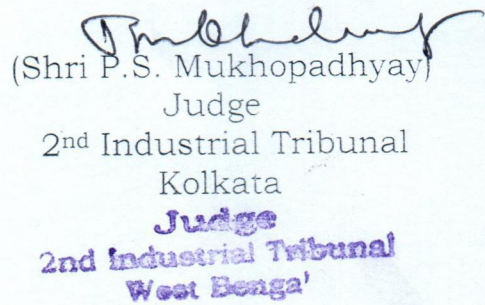 (Shri P.S. Mukhopadhyay)
Judge
2nd Industrial Tribunal
Kolkata
Judge
2nd Industrial Tribunal
West Benga'